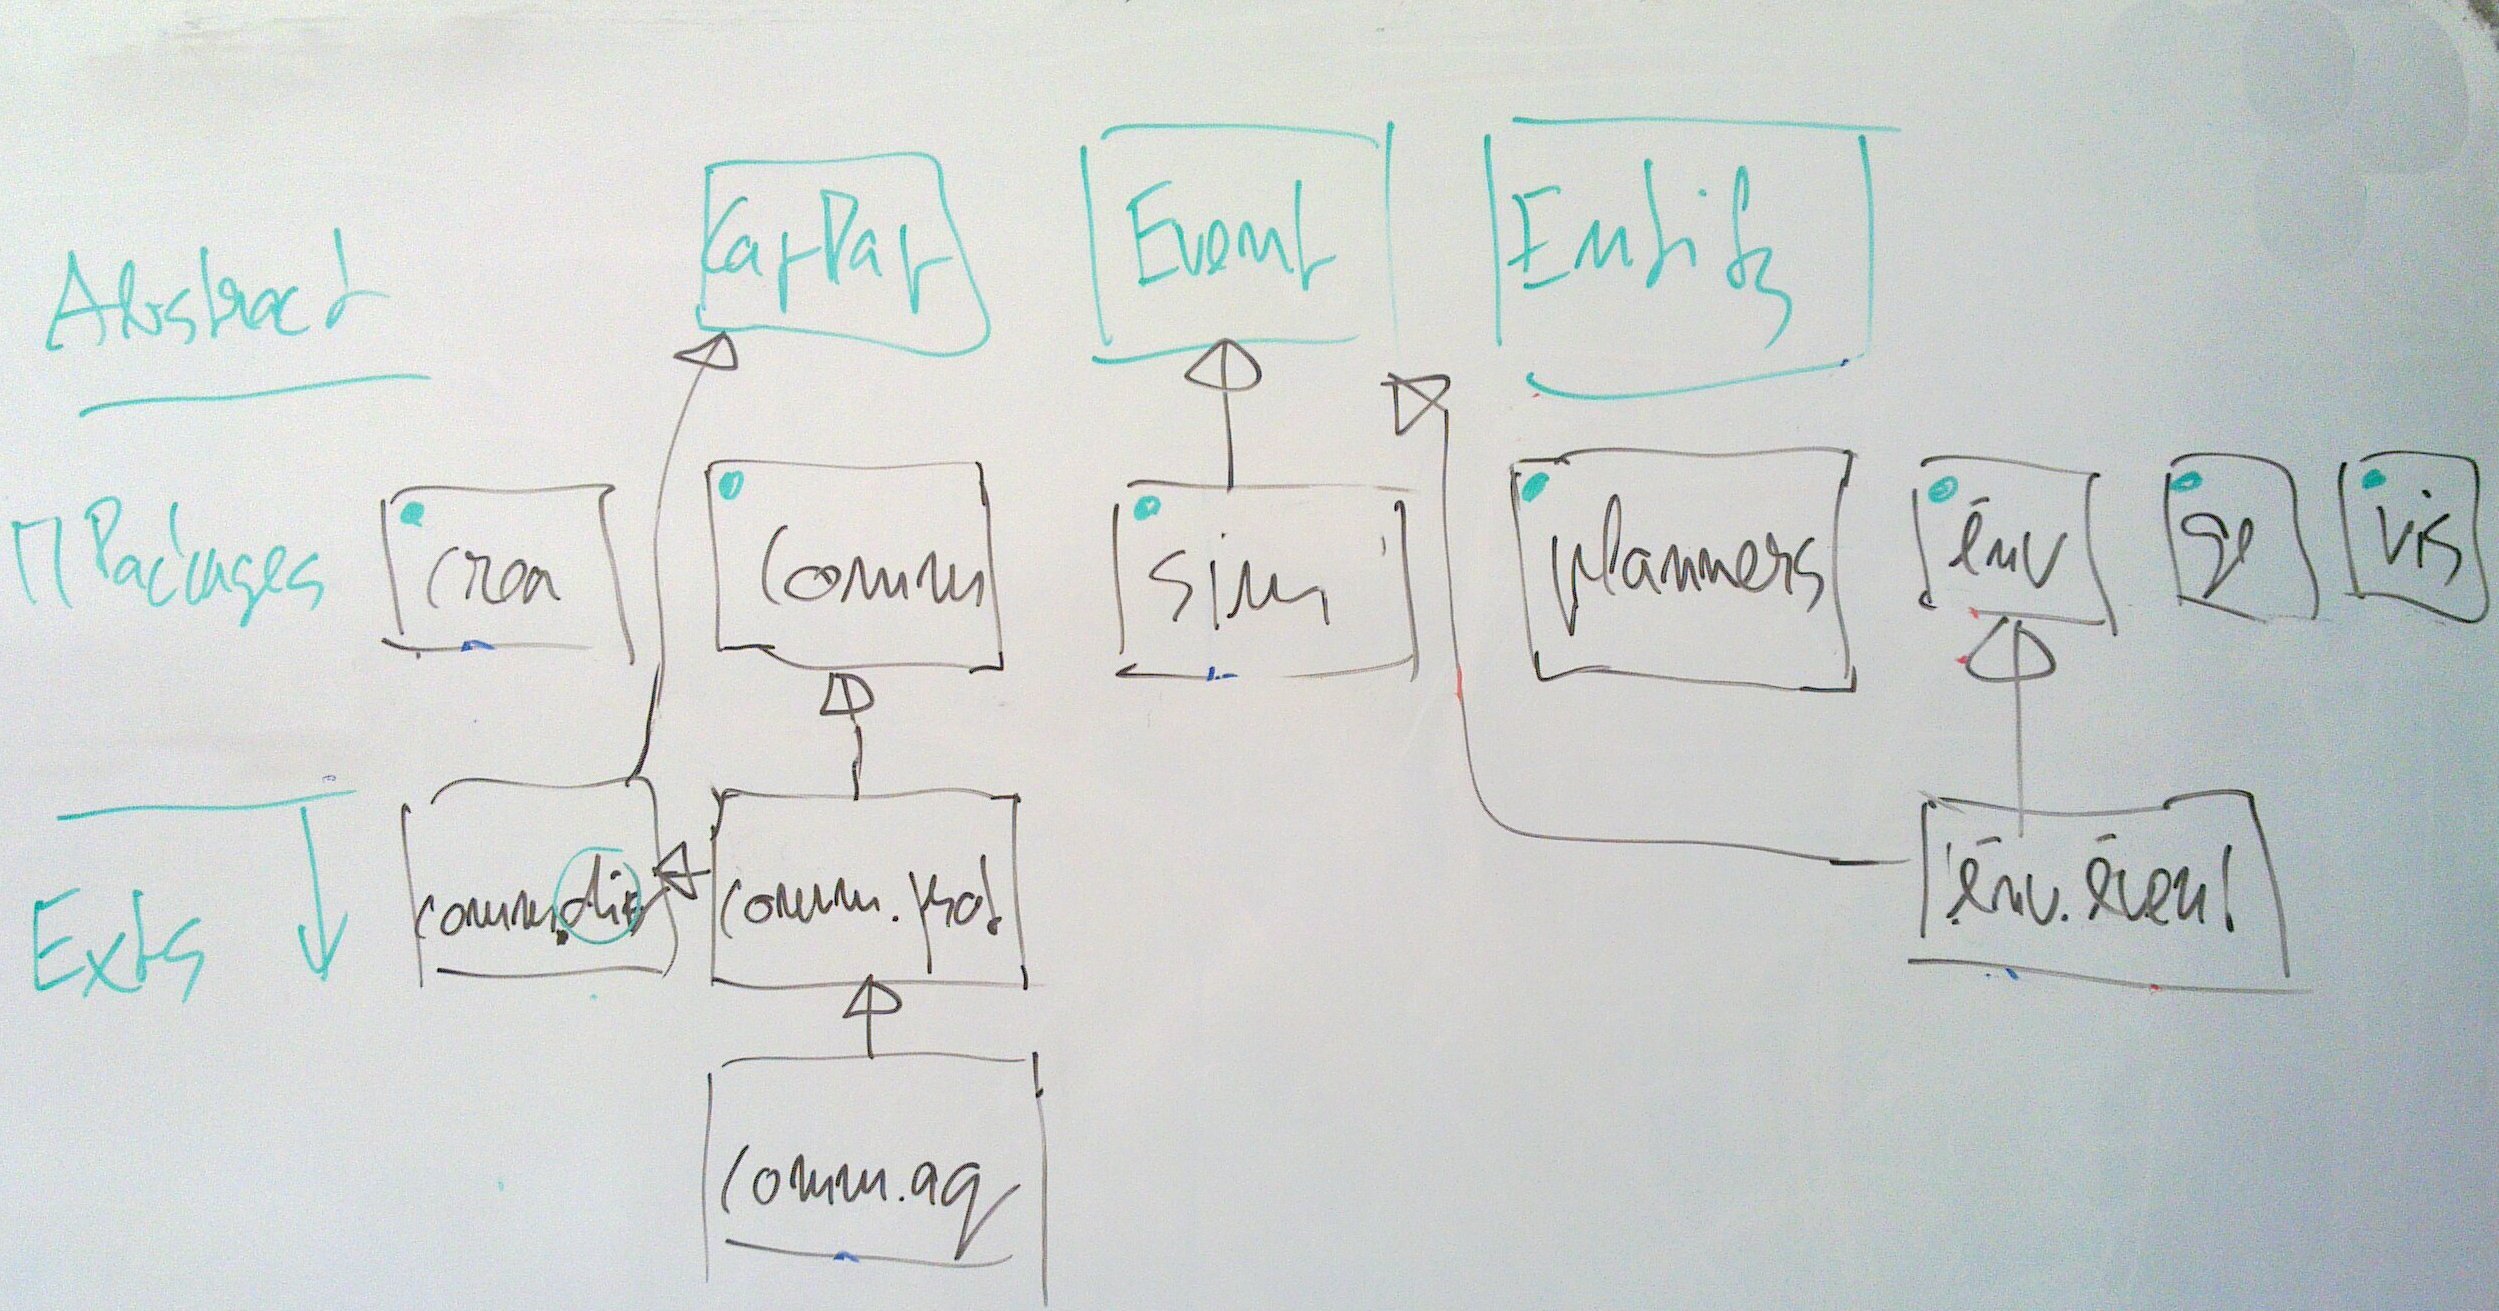 Abstract
Event
Entity
Packages
comm
sim
planners
env
vis
Exts
comm.
comm.prot
env.event
comm.aq